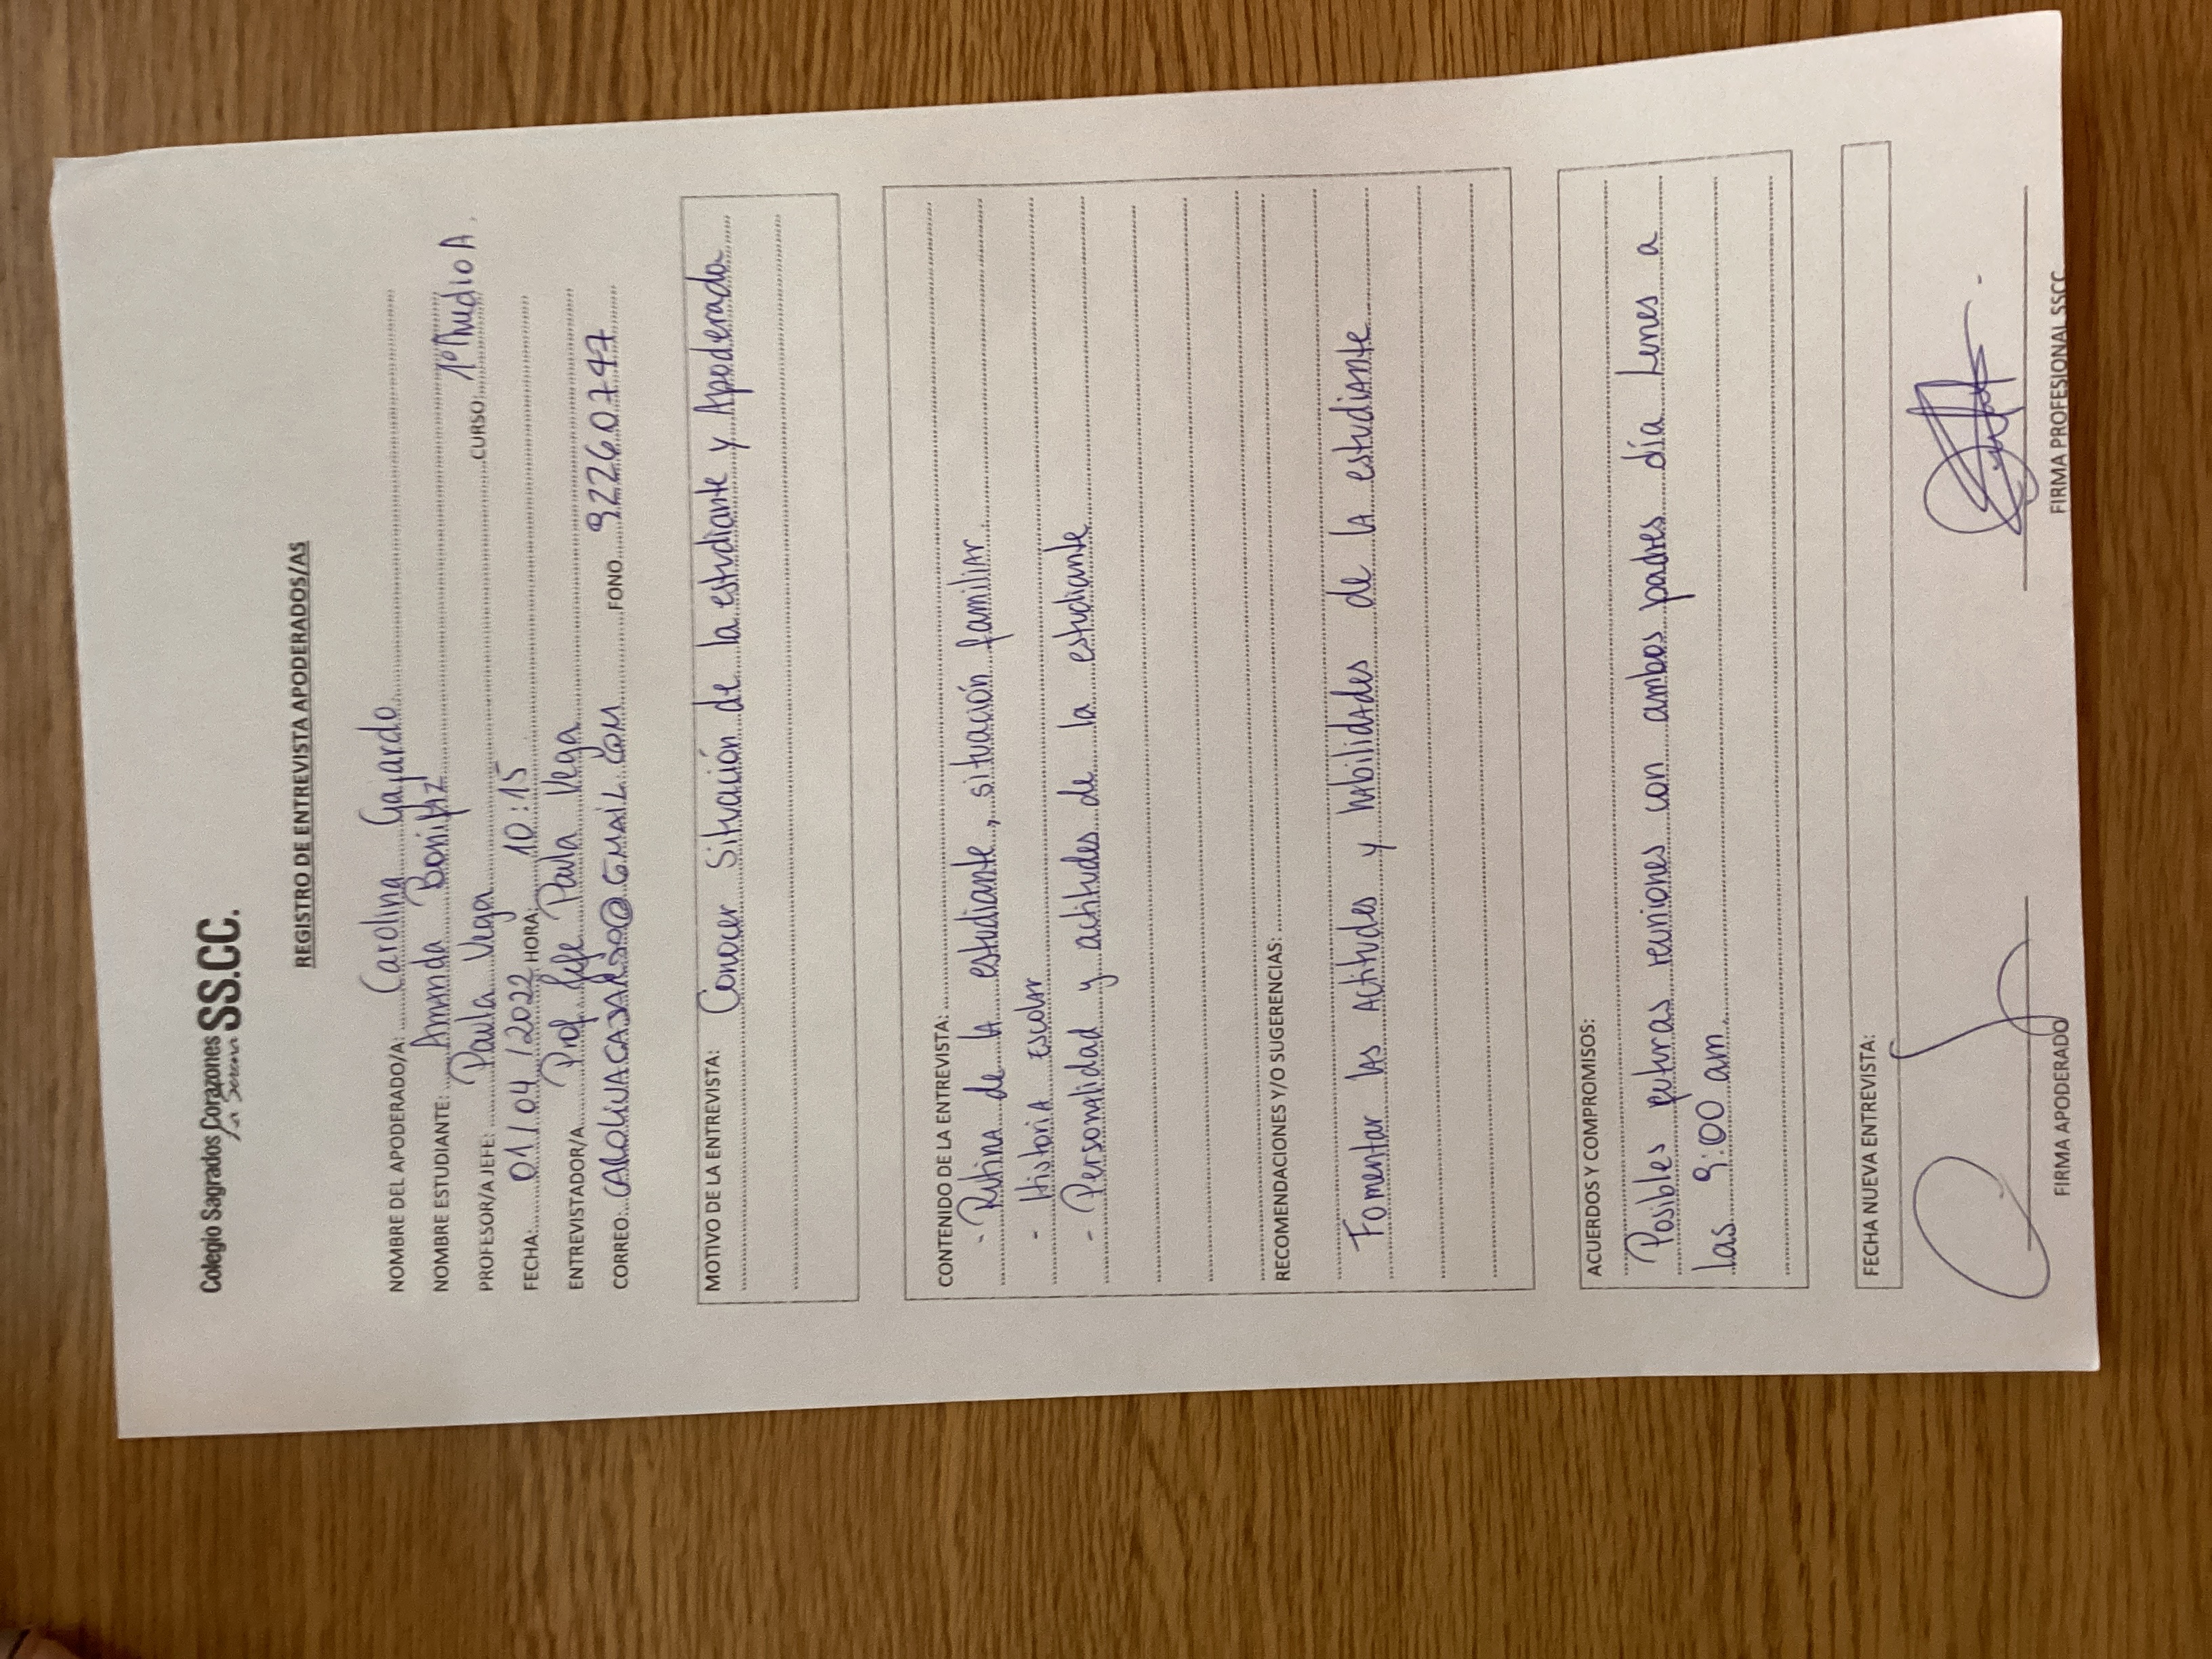 Colegio Sagrados Corazones SS.CC.
La Serena
REGISTRO DE ENTREVISTA APODERADOS/AS
NOMBRE DEL APODERADO/A: Carolina Gajardo
NOMBRE ESTUDIANTE: Amanda Bonifaz
PROFESOR/A JEFE: Paula Vega CURSO: 1º Medio A.
FECHA: 01/04/2022 HORA: 10:15
ENTREVISTADOR/A Prof Jefe Paula Vega
CORREO: CAROLINAGAJARDO@GMAIL.COM FONO. 92260747
MOTIVO DE LA ENTREVISTA: Conocer Situación de la estudiante y Apoderada
CONTENIDO DE LA ENTREVISTA:
- Rutina de la estudiante, situación familiar.
- Historia escolar
- Personalidad y actitudes de la estudiante
RECOMENDACIONES Y/O SUGERENCIAS:
Fomentar las Actitudes y habilidades de la estudiante
ACUERDOS Y COMPROMISOS:
Posibles futuras reuniones con ambos padres día Lunes a
las 9:00 am.
FECHA NUEVA ENTREVISTA:
FIRMA APODERADO FIRMA PROFESIONAL SSCC